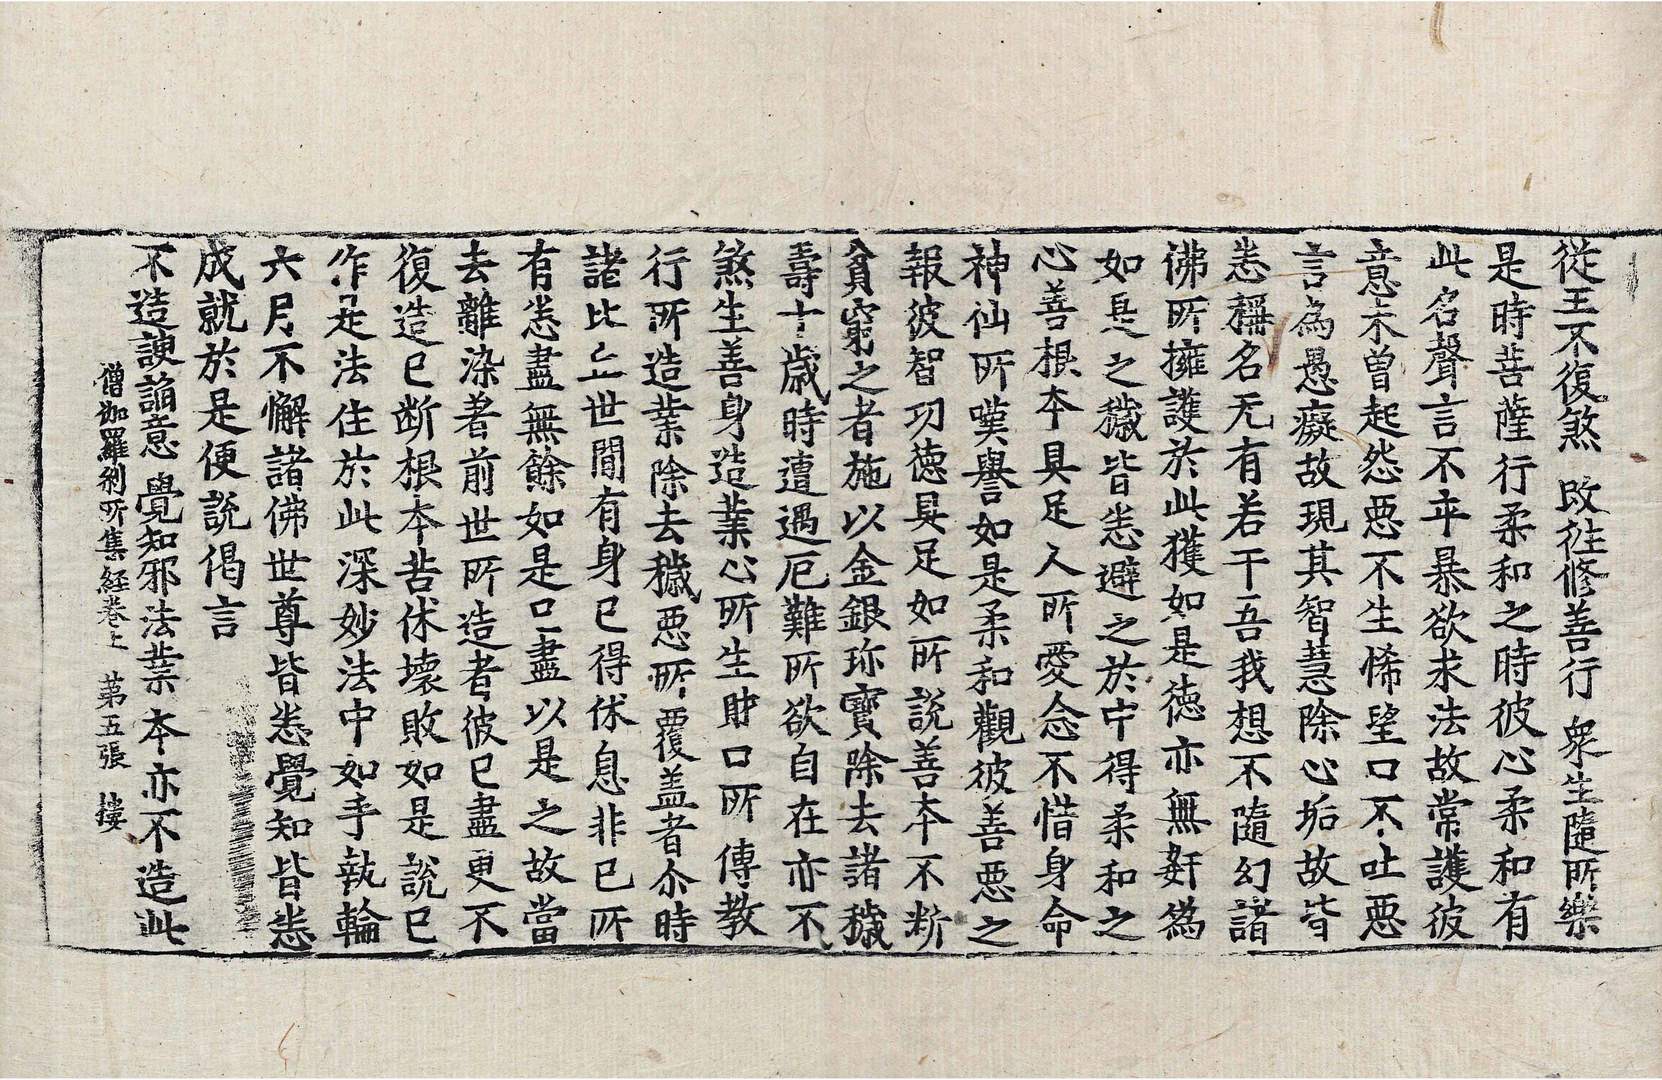 從王不復煞 改往修善行 衆生隨所樂
是時菩薩行柔和之時彼心柔和有
此名聲言不卒暴欲求法故常護彼
意未曾起怨惡不生悕望口不吐惡
言為愚癡故現其智慧除心垢故皆
悉稱名无有若干吾我想不隨幻諸
佛所擁護於此獲如是德亦無姧為
如是之穢皆悉避之於中得柔和之
心善根本具足人所愛念不惜身命
神仙所嘆譽如是柔和觀彼善惡之
報彼智功德具足如所說善本不断
貧窮之者施以金銀珎寶除去諸穢
壽十歲時遭遇厄難所欲自在亦不
煞生善身造業心所生財口所 傳教
行所造業除去穢惡所覆盖者尒時
諸比丘世間有身已得休息非已所
有悉盡無餘如是已盡以是之故當
去離染著前世所造者彼已盡更不
復造已断根本苦休壞敗如是說已
作是法住於此深妙法中如手執輪
六月不懈諸佛世尊皆悉覺知皆悉
成就於是便說偈言
不造諛諂意 覺知邪法業 本亦不造此
僧伽羅刹所集経卷上 第五張 樓